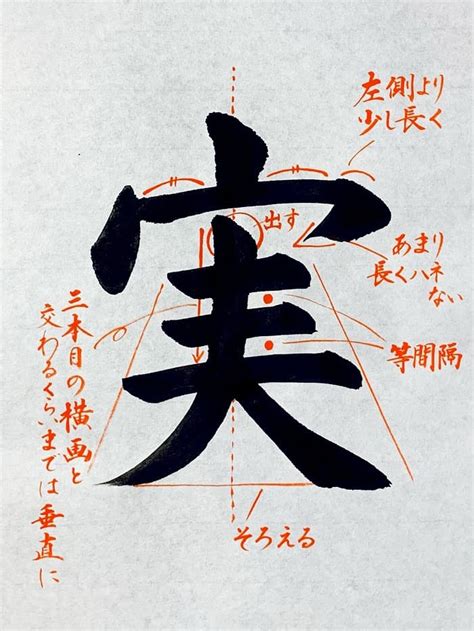 実
左側より
少し長く
出す
あまり
長くハネ
ない
等間隔
三本目の横画と
交わるくらいまでは垂直に
そろえる